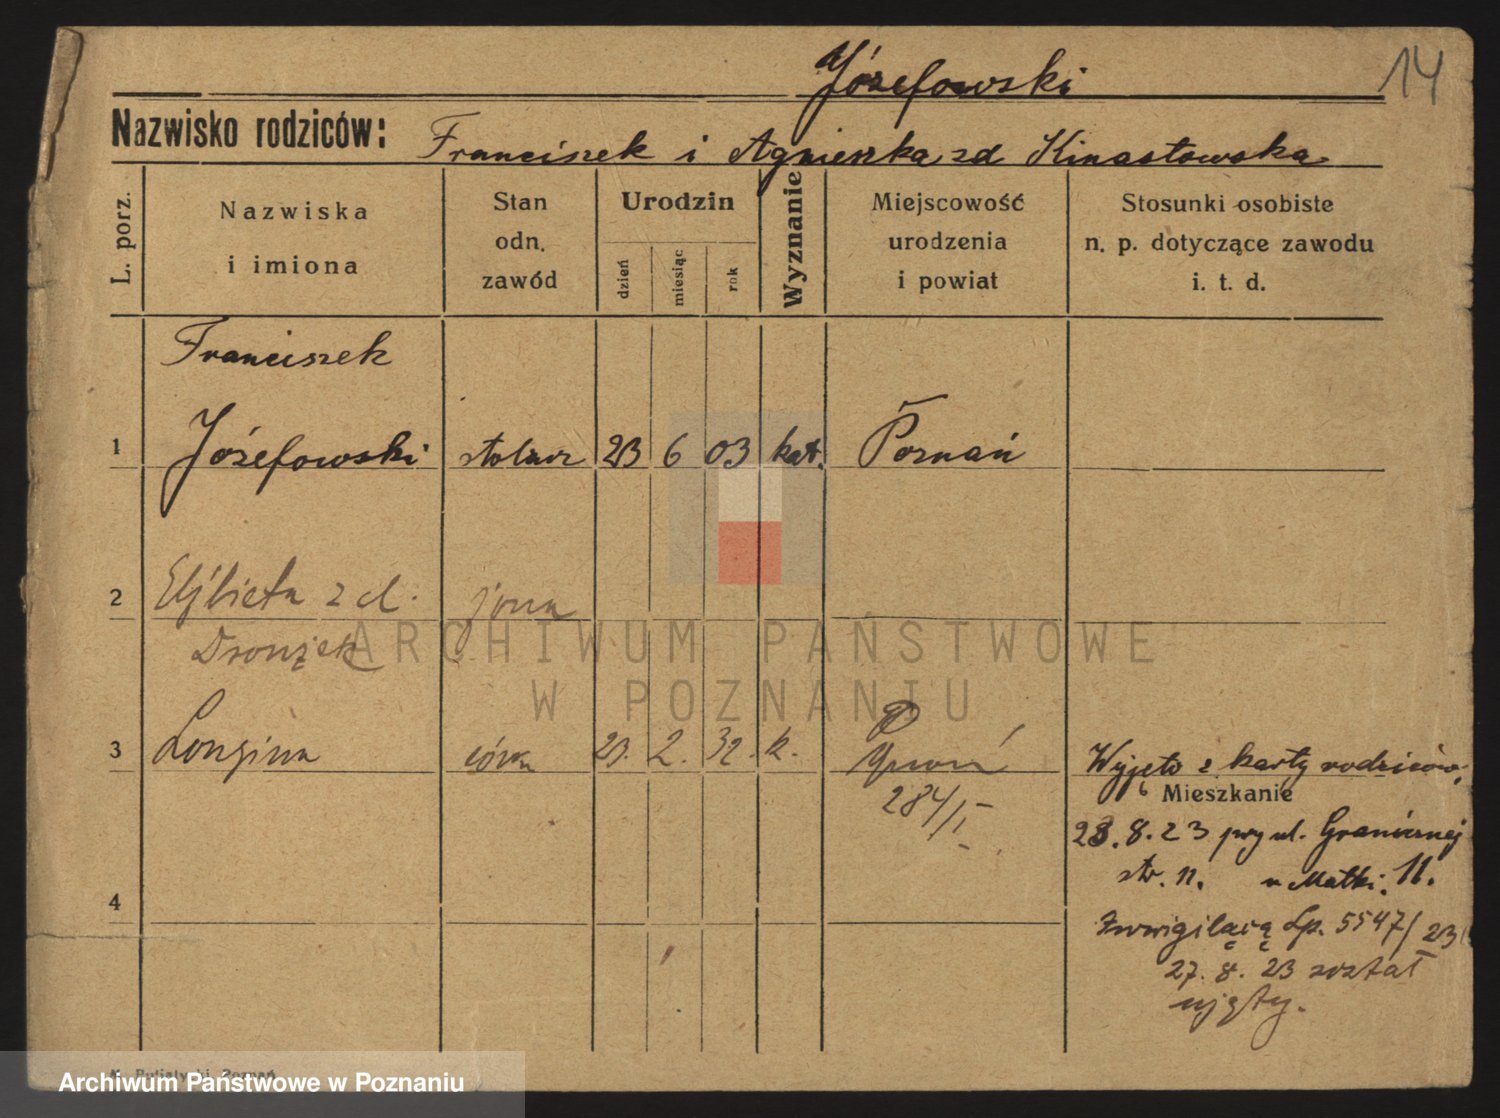 Józefowski
14
Nazwisko rodziców: Franciszek i Agnieszka zd Kinastowska
L. porz.
Nazwiska
i imiona
Stan
odn.
zawód
Urodzin
dzień
miesiąc
rok
Wyznanie
Miejscowość
urodzenia
i powiat
Stosunki osobiste
n. p. dotyczące zawodu
i. t. d.
Franciszek
1 Józefowski stolarz 23 6 03 kat. Poznań
2 Elżbieta z d. żona
3 Longina córka 23. 2. 32. k.
284/I
Wyjęto z karty rodziców
Mieszkanie
23. 8. 23 przy ul. Granicznej
str. 11. u Matki. 11.
Lp. 5547/23
27. 8. 23 został
ujęty.
4
ARCHIWUM PAŃSTWOWE
W POZNANIU
Poznań
Archiwum Państwowe w Poznaniu